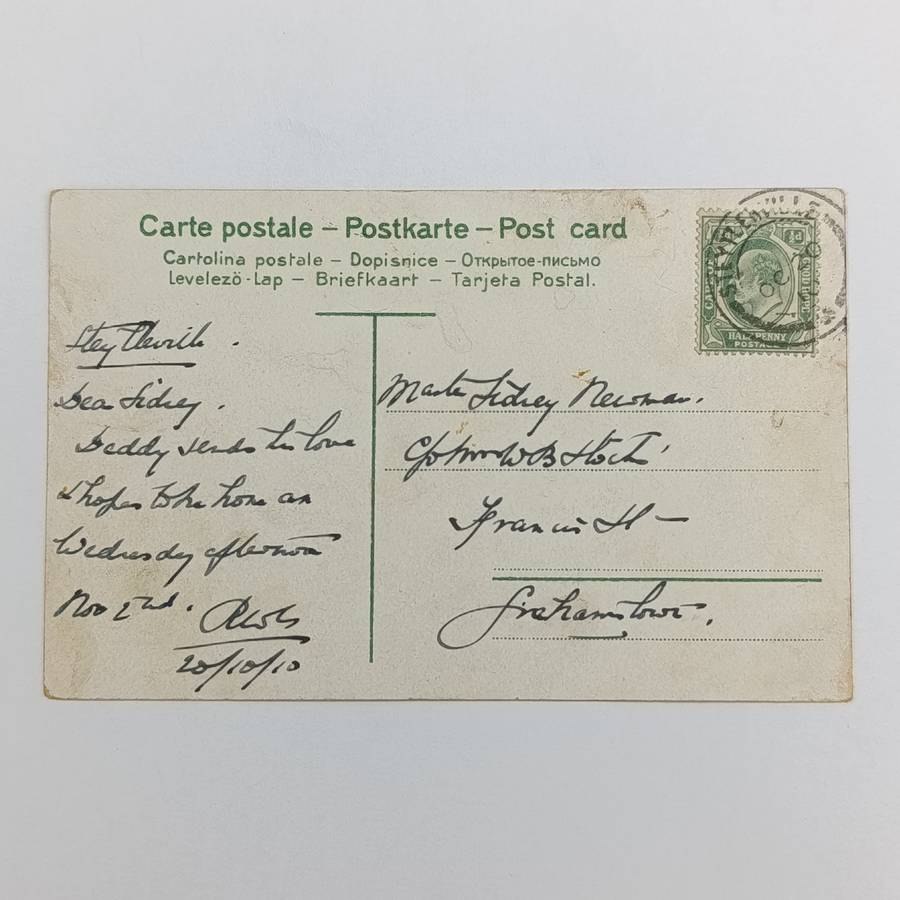 Carte postale – Postkarte – Post card
Cartolina postale – Dopisnice – Открытое-письмо
Levelező-Lap – Briefkaart – Tarjeta Postal.
CAPE OF GOOD HOPE
½d
HALF PENNY
POSTAGE
STEYTLERVILLE
OC 20
Steytlerville.
Dear Sidney.
Daddy sends his love
& hopes to be home on
Wednesday afternoon
Nov 2nd.
20/10/10
Master Sidney Newman.
C/o Mrs W B Stocks
Francis St –
Grahamstown.